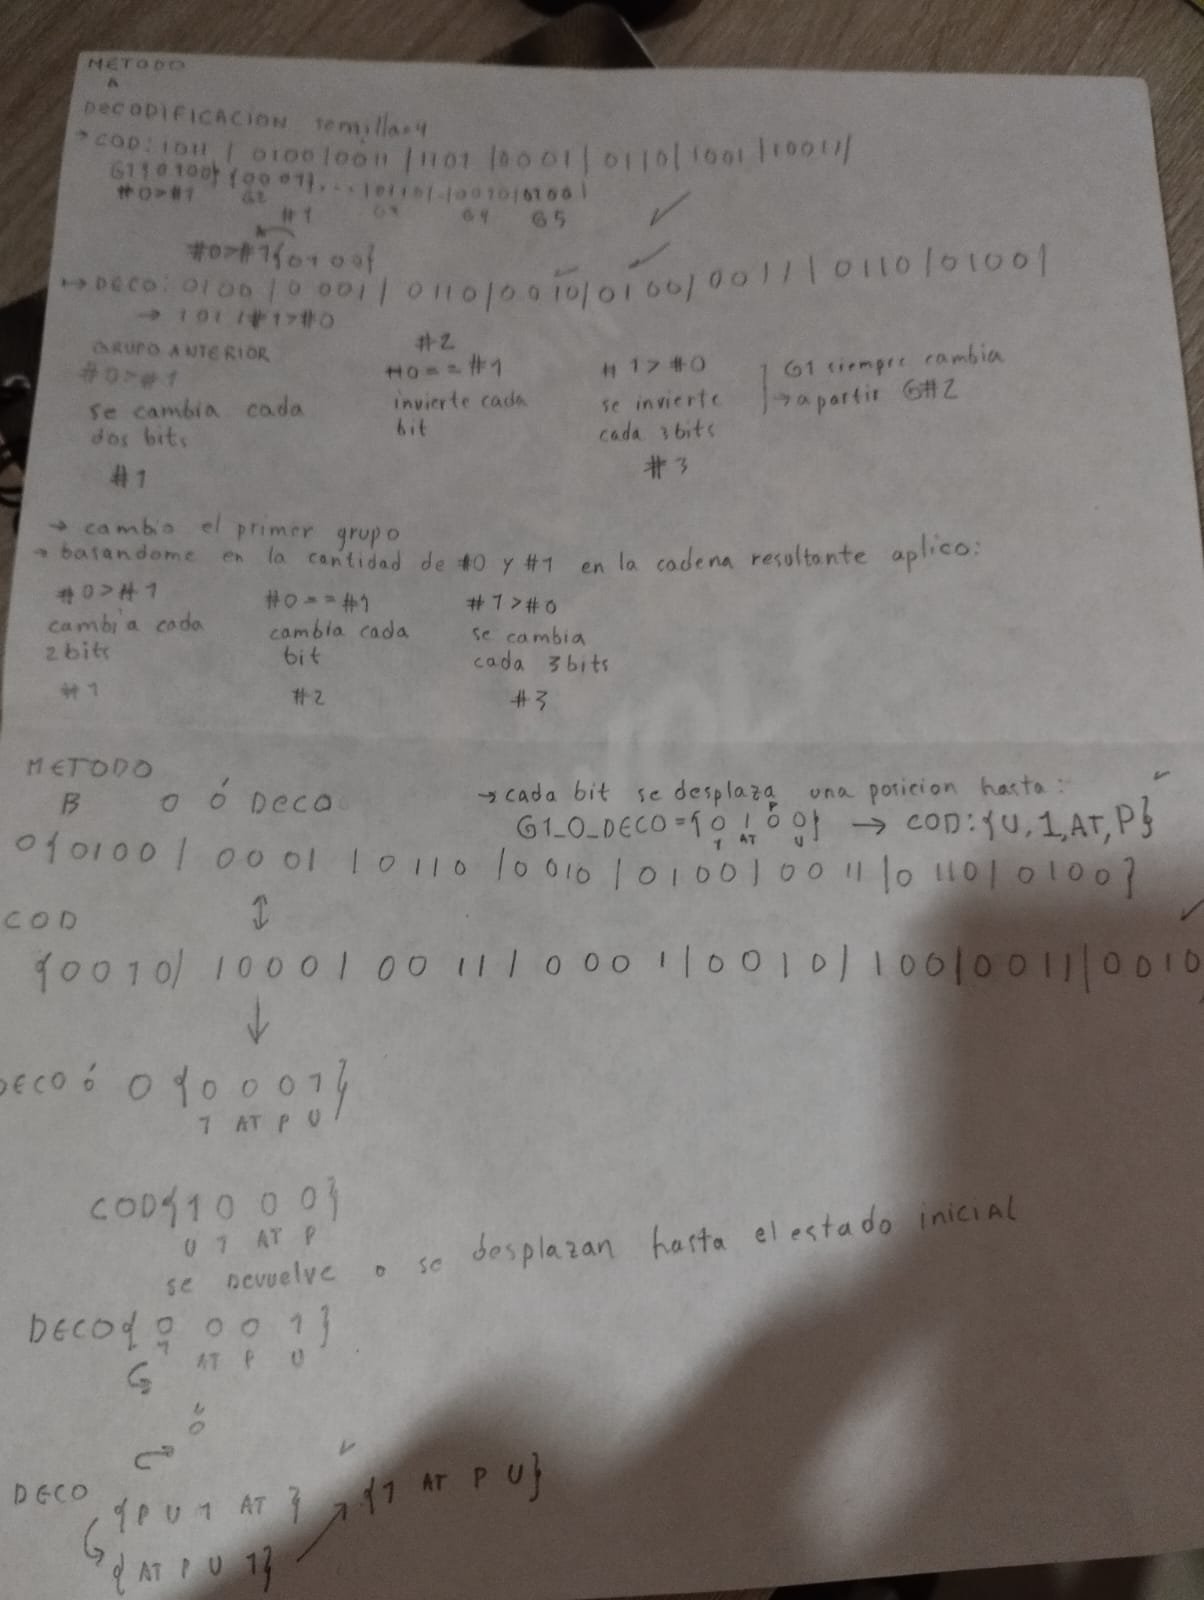 METODO
A
DECODIFICACION semilla=4
→ COD: 1011 | 0100 | 0011 | 1101 | 0001 | 0110 | 1001 | 1001 |
G1{0100} {0001},...
#0>#1 G2 G4 G5
#1
#0>#1{0100}
→ DECO: 0100 | 0001 | 0110 | 0010 | 0100 | 0011 | 0110 | 0100 |
→ 1011 #1>#0
GRUPO ANTERIOR
#0>#1
se cambia cada
dos bits
#1
#2
#0==#1
invierte cada
bit
#1>#0
se invierte
cada 3 bits
#3
G1 siempre cambia
→ a partir G#2
→ cambio el primer grupo
→ basandome en la cantidad de #0 y #1 en la cadena resultante aplico:
#0>#1
cambia cada
2 bits
#1
#0==#1
cambia cada
bit
#2
#1>#0
se cambia
cada 3 bits
#3
METODO
B O ó DECO
→ cada bit se desplaza una posicion hasta:
G1_O_DECO={0 1 0 0} → COD:{U,1,AT,P}
1 AT P U
O{0100 | 0001 | 0110 | 0010 | 0100 | 0011 | 0110 | 0100}
COD
{0010 | 1000 | 0011 | 0001 | 0010 | 100 | 0011 | 0010
DECO ó O{0001}
1 AT P U
COD{1000}
U 1 AT P
se Devuelve o se desplazan hasta el estado inicial
DECO{0 0 0 1}
1 AT P U
ó
DECO {P U 1 AT} → {1 AT P U}
{AT P U 1}